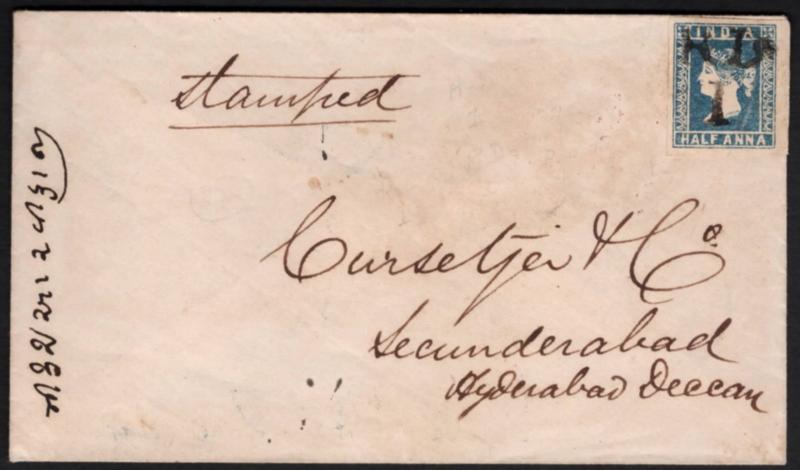 INDIA
HALF ANNA
1
Stamped
Cursetjee & Co
Secunderabad
Hyderabad Deccan